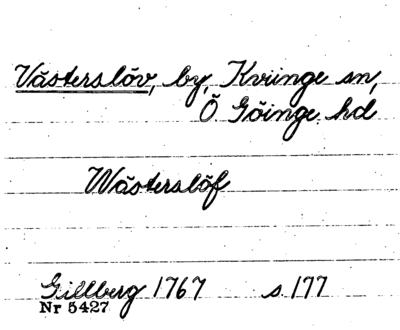 Västerslöv, by, Kviinge sn,
Ö. Göinge hd
Wästerslöf
Gillberg 1767 s. 177
Nr 5427